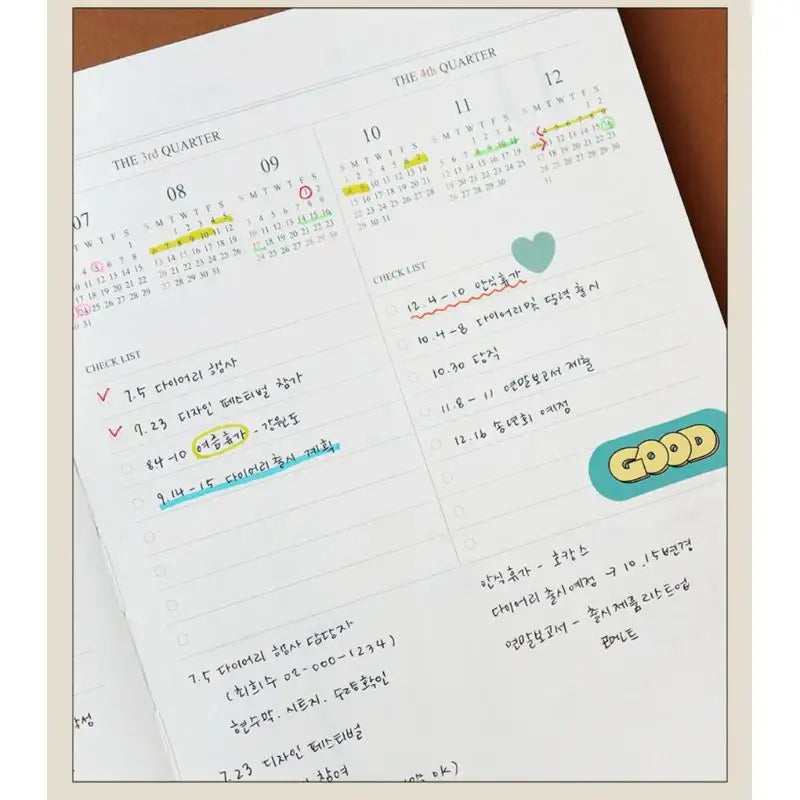 THE 3rd QUARTER
07
W T F S
1
4 5 6 7 8
11 12 13 14 15
18 19 20 21 22
25 26 27 28 29
31
08
S M T W T F S
1 2 3 4 5
6 7 8 9 10 11 12
13 14 15 16 17 18 19
20 21 22 23 24 25 26
27 28 29 30 31
09
S M T W T F S
1 2
3 4 5 6 7 8 9
10 11 12 13 14 15 16
17 18 19 20 21 22 23
24 25 26 27 28 29 30
CHECK LIST
7.5 다이어리 행사
7.23 디자인 페스티벌 참가
8.4-10 여름휴가 - 강원도
9.14-15 다이어리 출시 계획
7.5 다이어리 행사 담당자
(최희수 02-000-1234)
현수막. 시트지. 수량확인
7.23 디자인 페스티벌
참여
OK)
THE 4th QUARTER
10
S M T W T F S
1 2 3 4 5 6 7
8 9 10 11 12 13 14
15 16 17 18 19 20 21
22 23 24 25 26 27 28
29 30 31
11
S M T W T F S
1 2 3 4
5 6 7 8 9 10 11
12 13 14 15 16 17 18
19 20 21 22 23 24 25
26 27 28 29 30
12
S M T W T F S
1 2
3 4 5 6 7 8 9
10 11 12 13 14 15 16
17 18 19 20 21 22 23
24 25 26 27 28 29 30
31
CHECK LIST
12.4-10 안식휴가
10.4-8 다이어리 및 달력 출시
10.30 당직
11.8-11 연말보고서 제출
12.16 송년회 예정
GOOD
안식휴가 - 호캉스
다이어리 출시예정 → 10.15변경
연말보고서 - 출시제품리스트업
코멘트